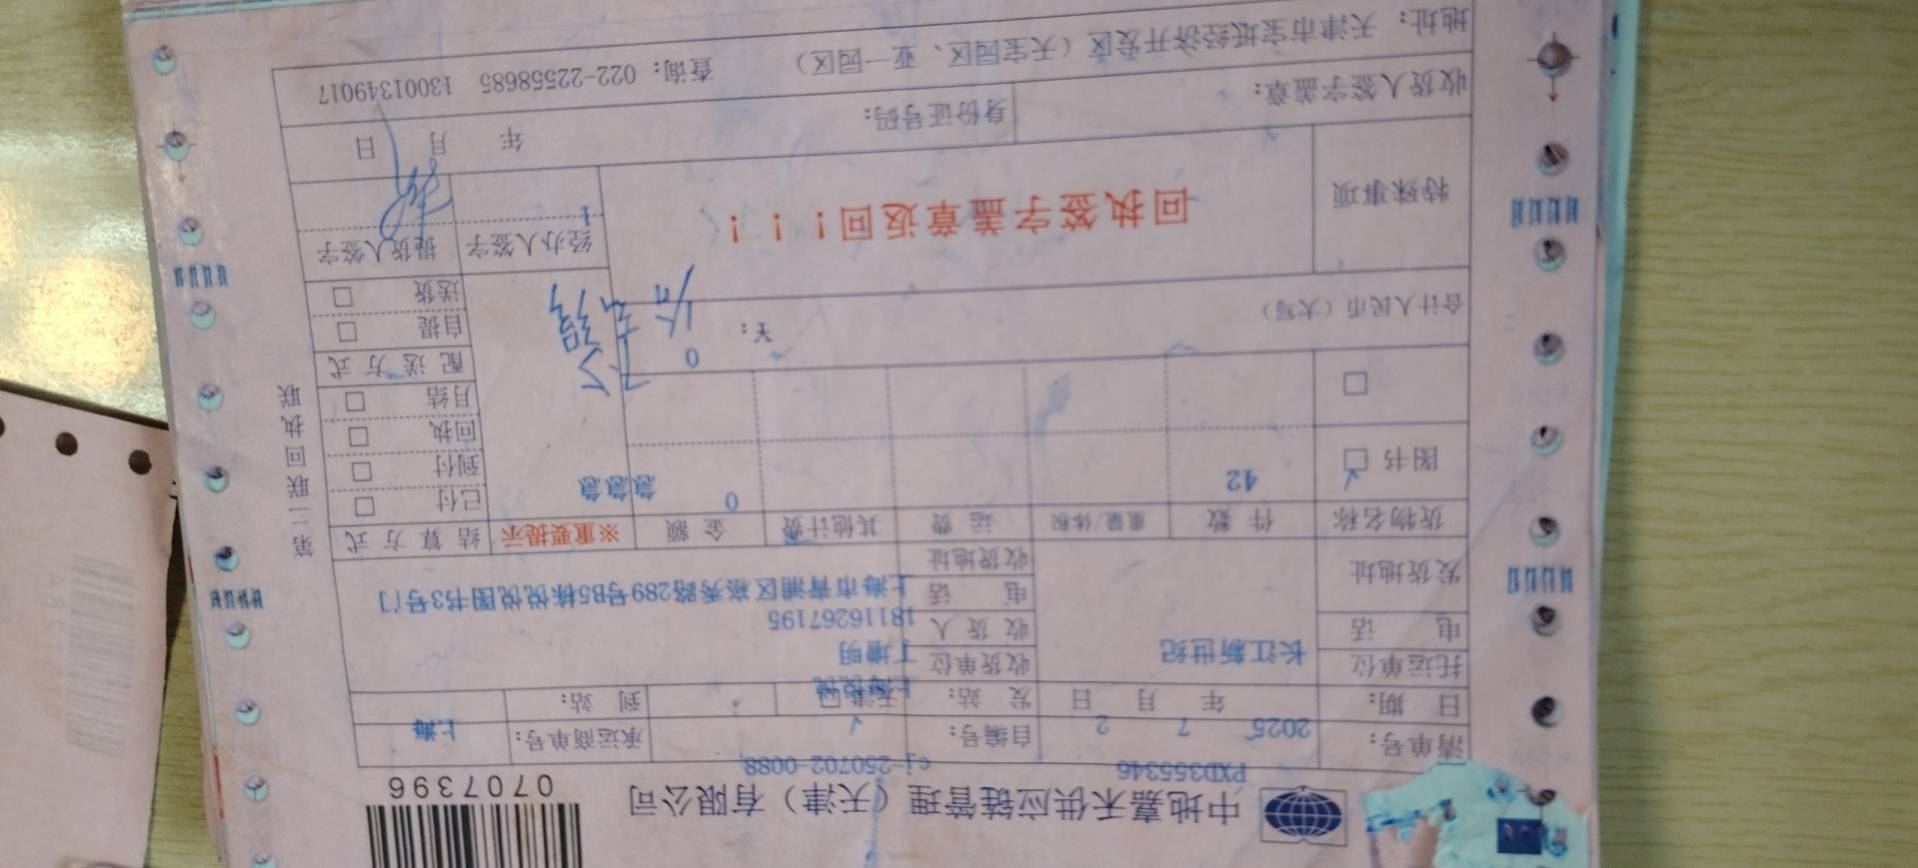 中地嘉禾供应链管理（天津）有限公司
0707396
PXD355346
cj-250702-0088
清单号：
自编号：
承运商单号：
2025 7 2
上海
日 期： 年 月 日
发 站： 天津 ☐
到 站：
托运单位 长江新世纪
收货单位 上海悦悦
电 话
收 货 人 丁增明
电 话 18116267195
发货地址
收货地址 上海市青浦区崧秀路289号B5栋悦悦图书3号门
货物名称 件 数 重量/体积 运 费 其他计费 金 额 ※重要提示 结 算 方 式
图书 ☑ 42 0 急急急
已付 ☐
到付 ☐
回执 ☐
月结 ☐
☐
0
配 送 方 式
自提 ☐
送货 ☐
合计人民币（大写） ￥：
特殊事项 回执签字盖章返回！！！
经办人签字 提货人签字
1
收货人签字盖章： 身份证号码： 年 月 日
地址：天津市宝坻经济开发区（天宝园区、亚一园区） 查询：022-22558685 13001349017
第二联 回执联